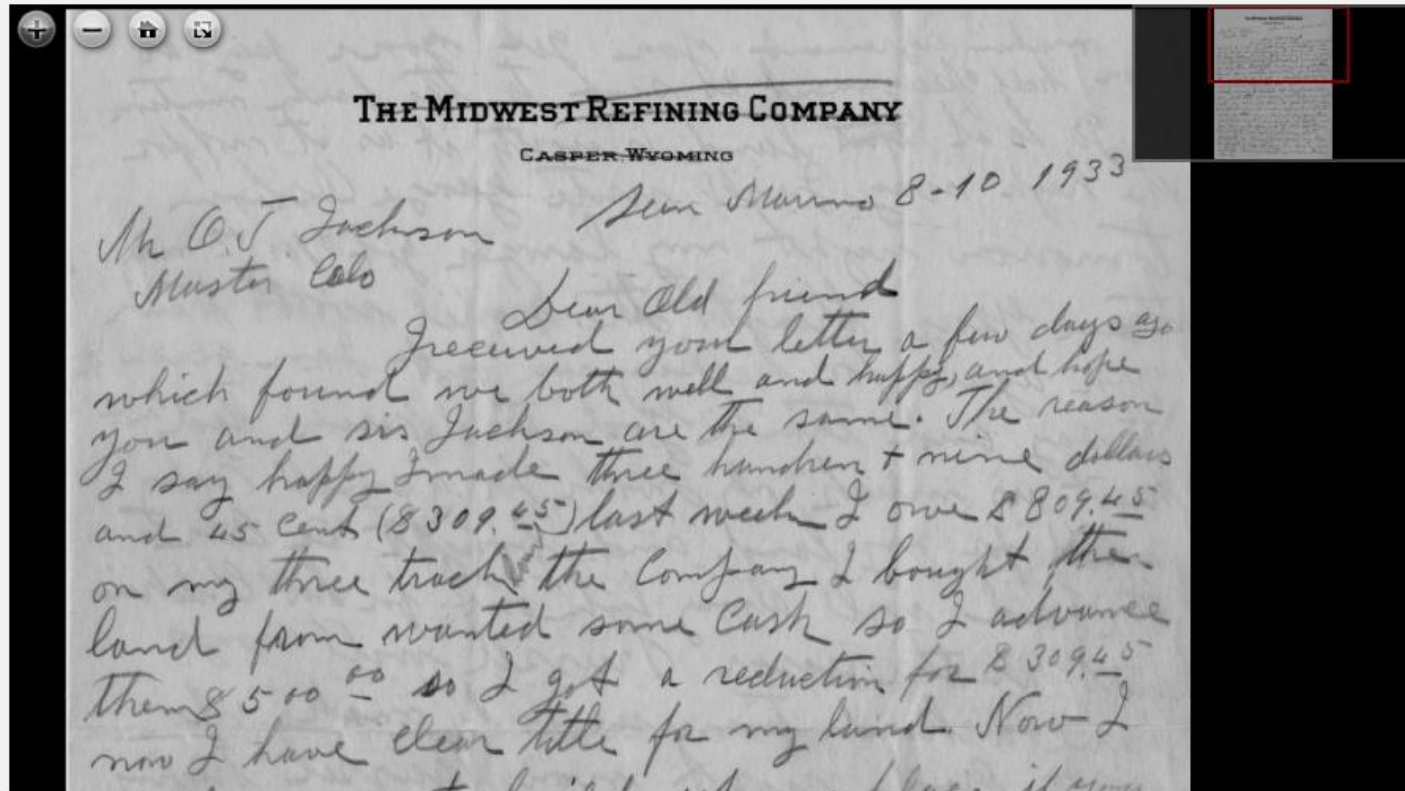 THE MIDWEST REFINING COMPANY
CASPER WYOMING
San Marino 8-10 1933
Mr O.T. Jackson
Master Colo
Dear Old friend
I received your letter a few days ago
which found we both well and happy, and hope
you and sis Jackson are the same. The reason
I say happy I made three hundren + nine dollars
and 45 cent ($309.45) last week I owe $809.45
on my three track the Company I bought the
land from wanted some Cash so I advance
them $500.00 so I got a reduction for $309.45
now I have clear title for my land. Now I